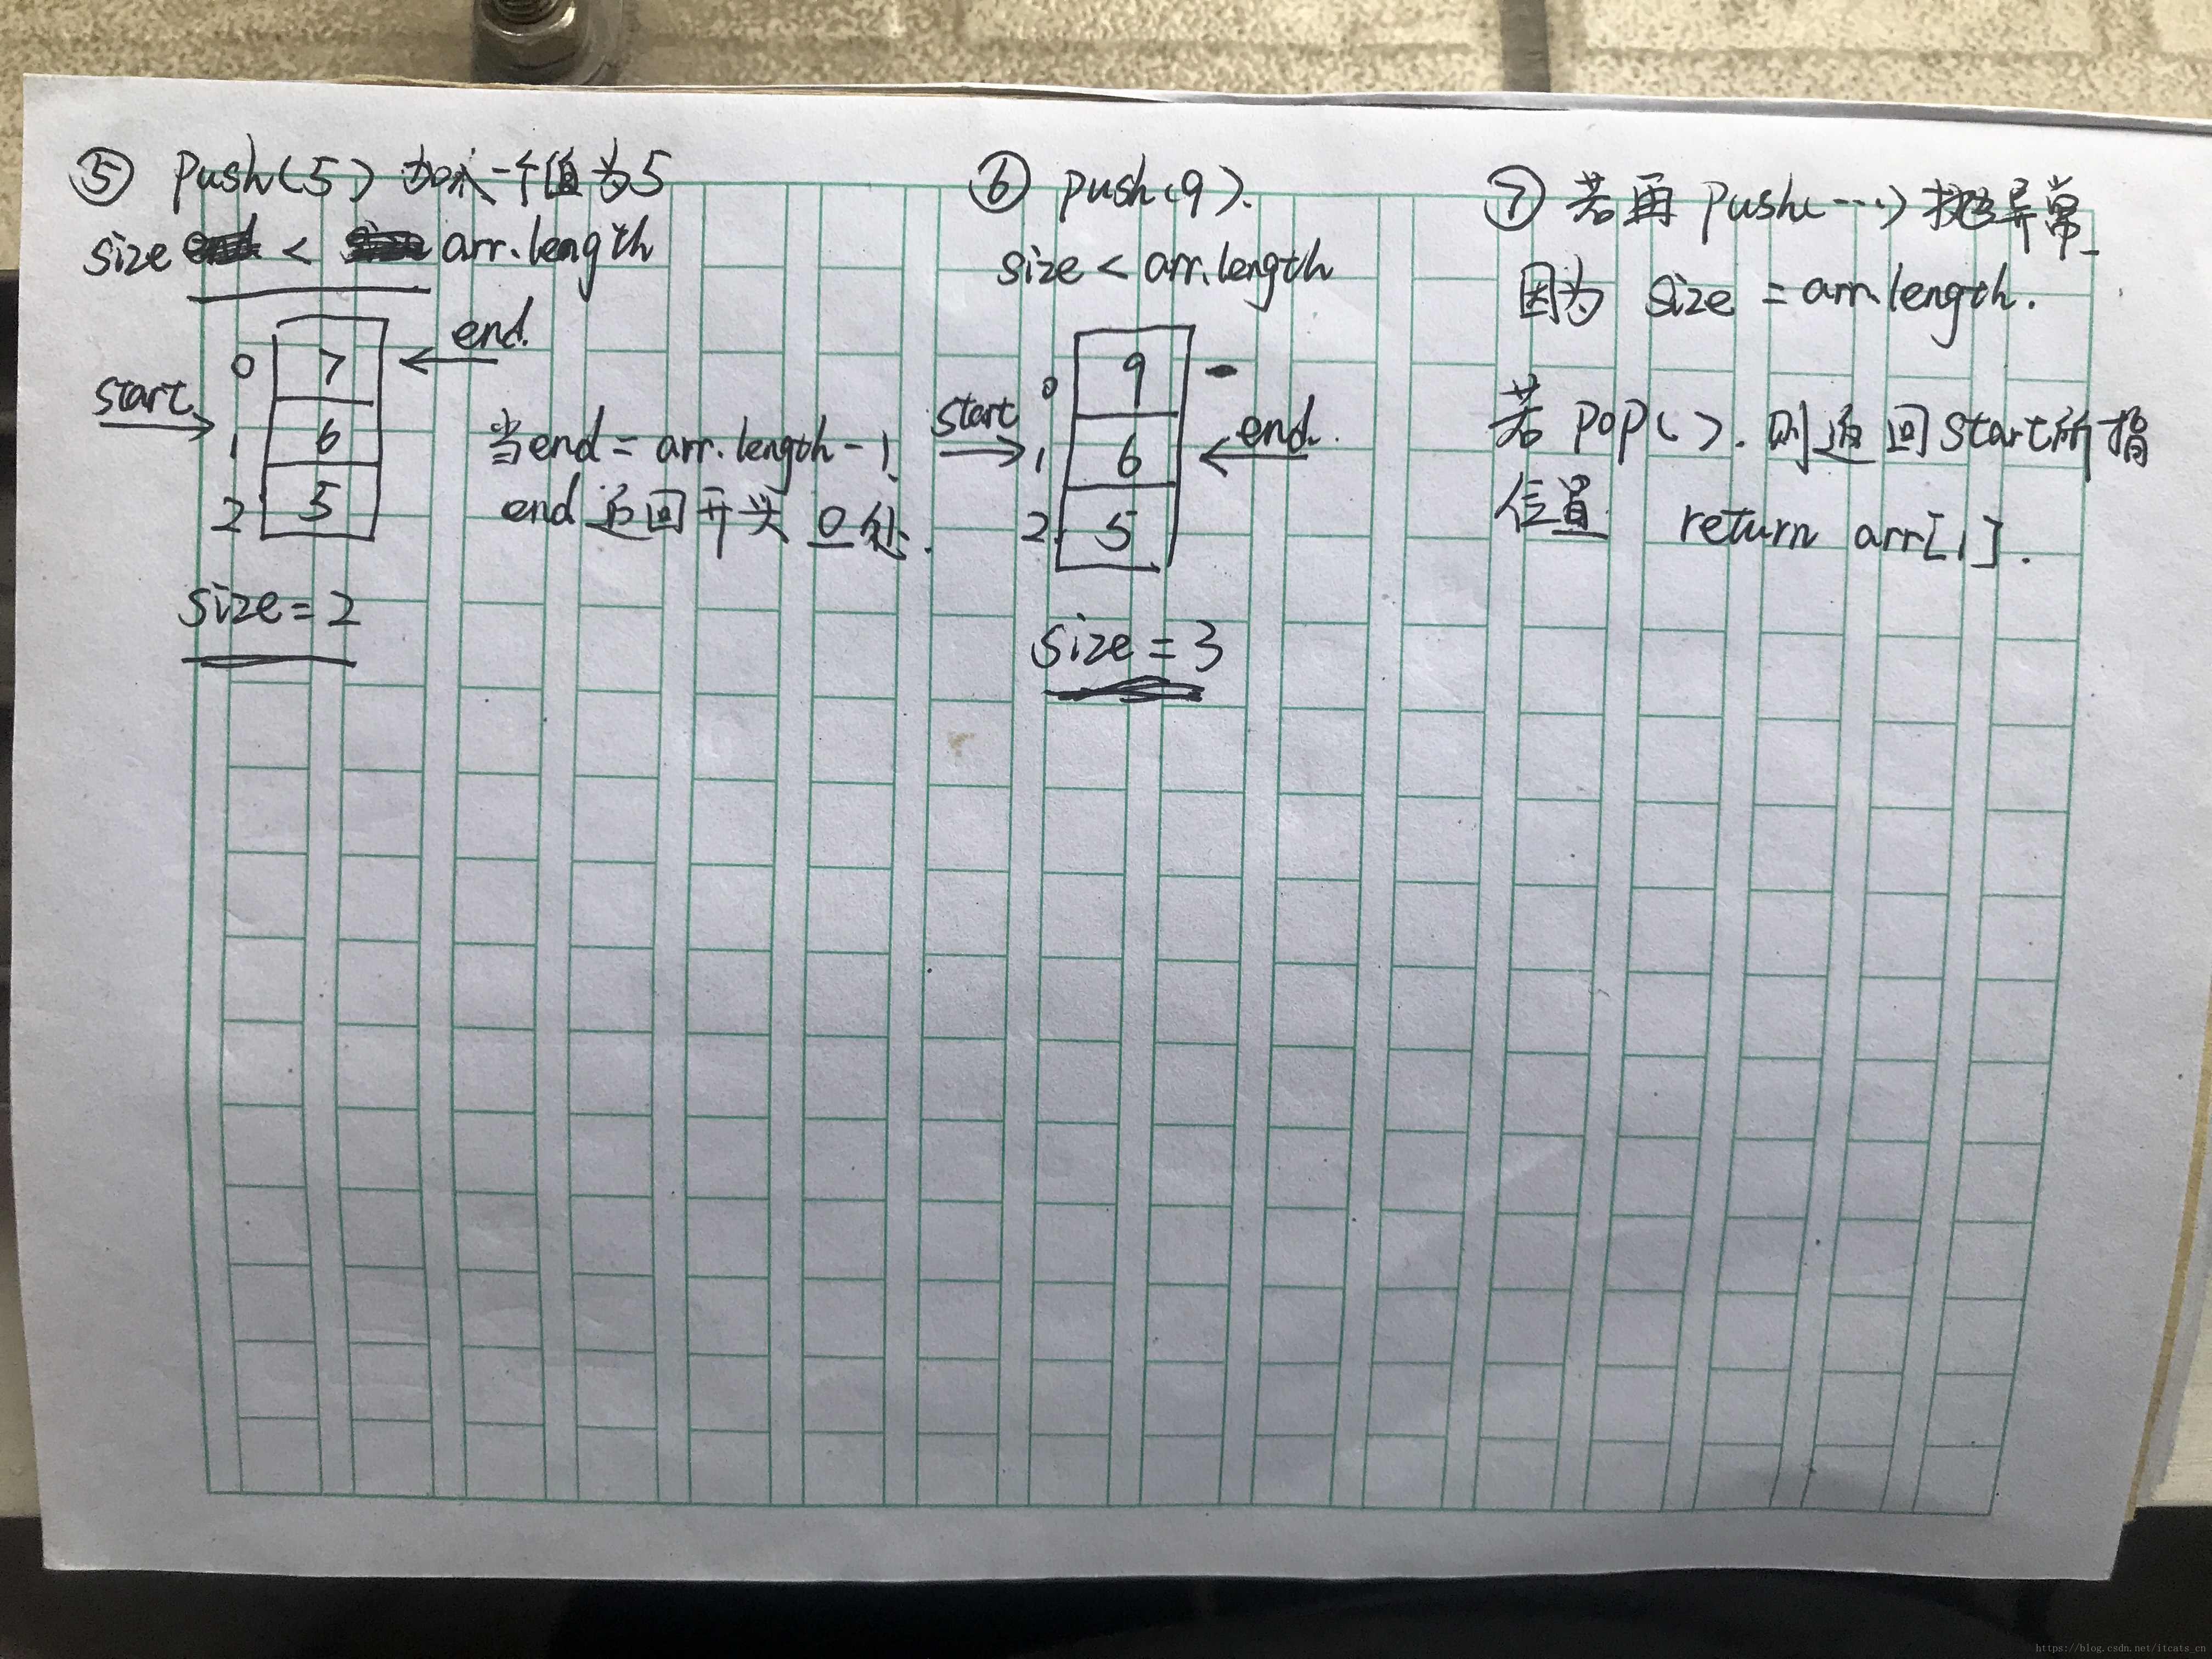 ⑤ push(5) 加入一个值为5
size < arr.length
end.
0 7
start
1 6
2 5
当end = arr.length-1
end返回开头 0处.
size=2
⑥ push(9).
size < arr.length
0 9
start
1 6
end.
2 5
size = 3
⑦ 若再 push(…) 抛异常
因为 size = arr.length.
若 pop(). 则返回start所指
位置 return arr[1].
https://blog.csdn.net/itcats_cn